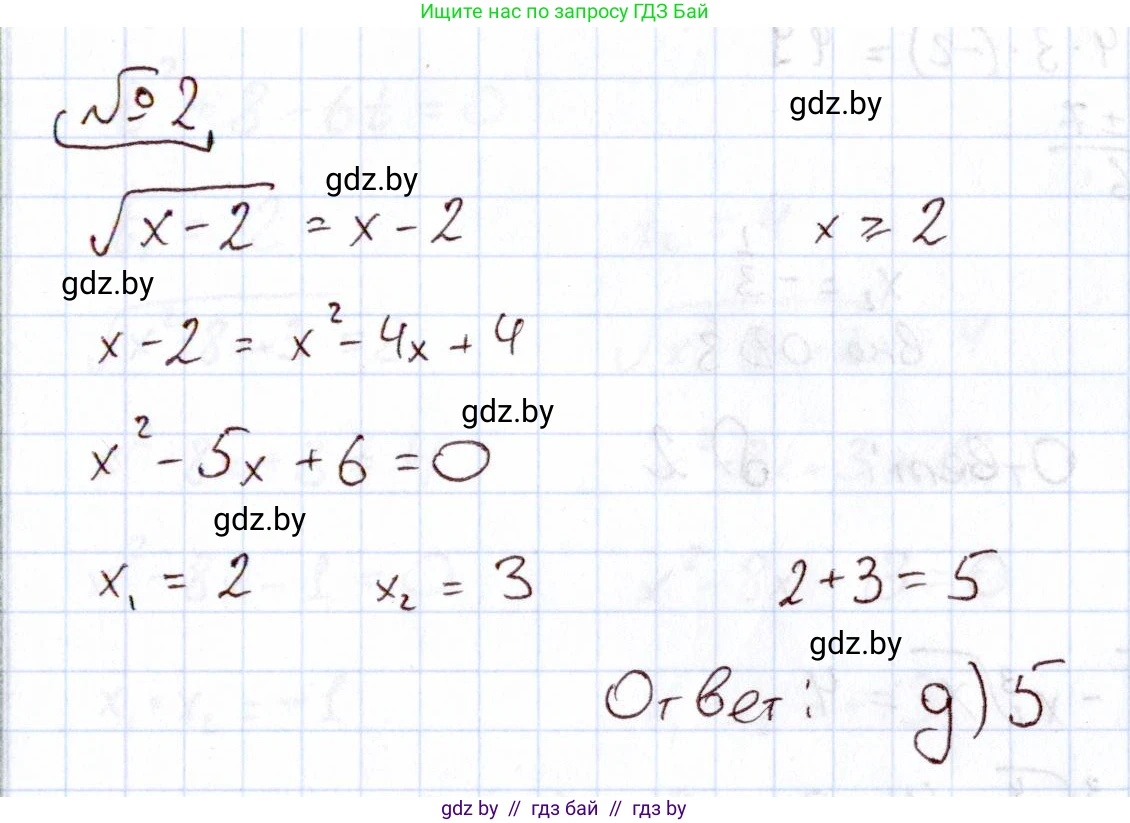 Ищите нас по запросу ГДЗ Бай
№ 2
gdz.by
gdz.by
√(x-2) = x - 2
x ≥ 2
gdz.by
x - 2 = x² - 4x + 4
gdz.by
x² - 5x + 6 = 0
gdz.by
x₁ = 2 x₂ = 3
2 + 3 = 5
gdz.by
Ответ: д) 5
gdz by // гдз бай // гдз by